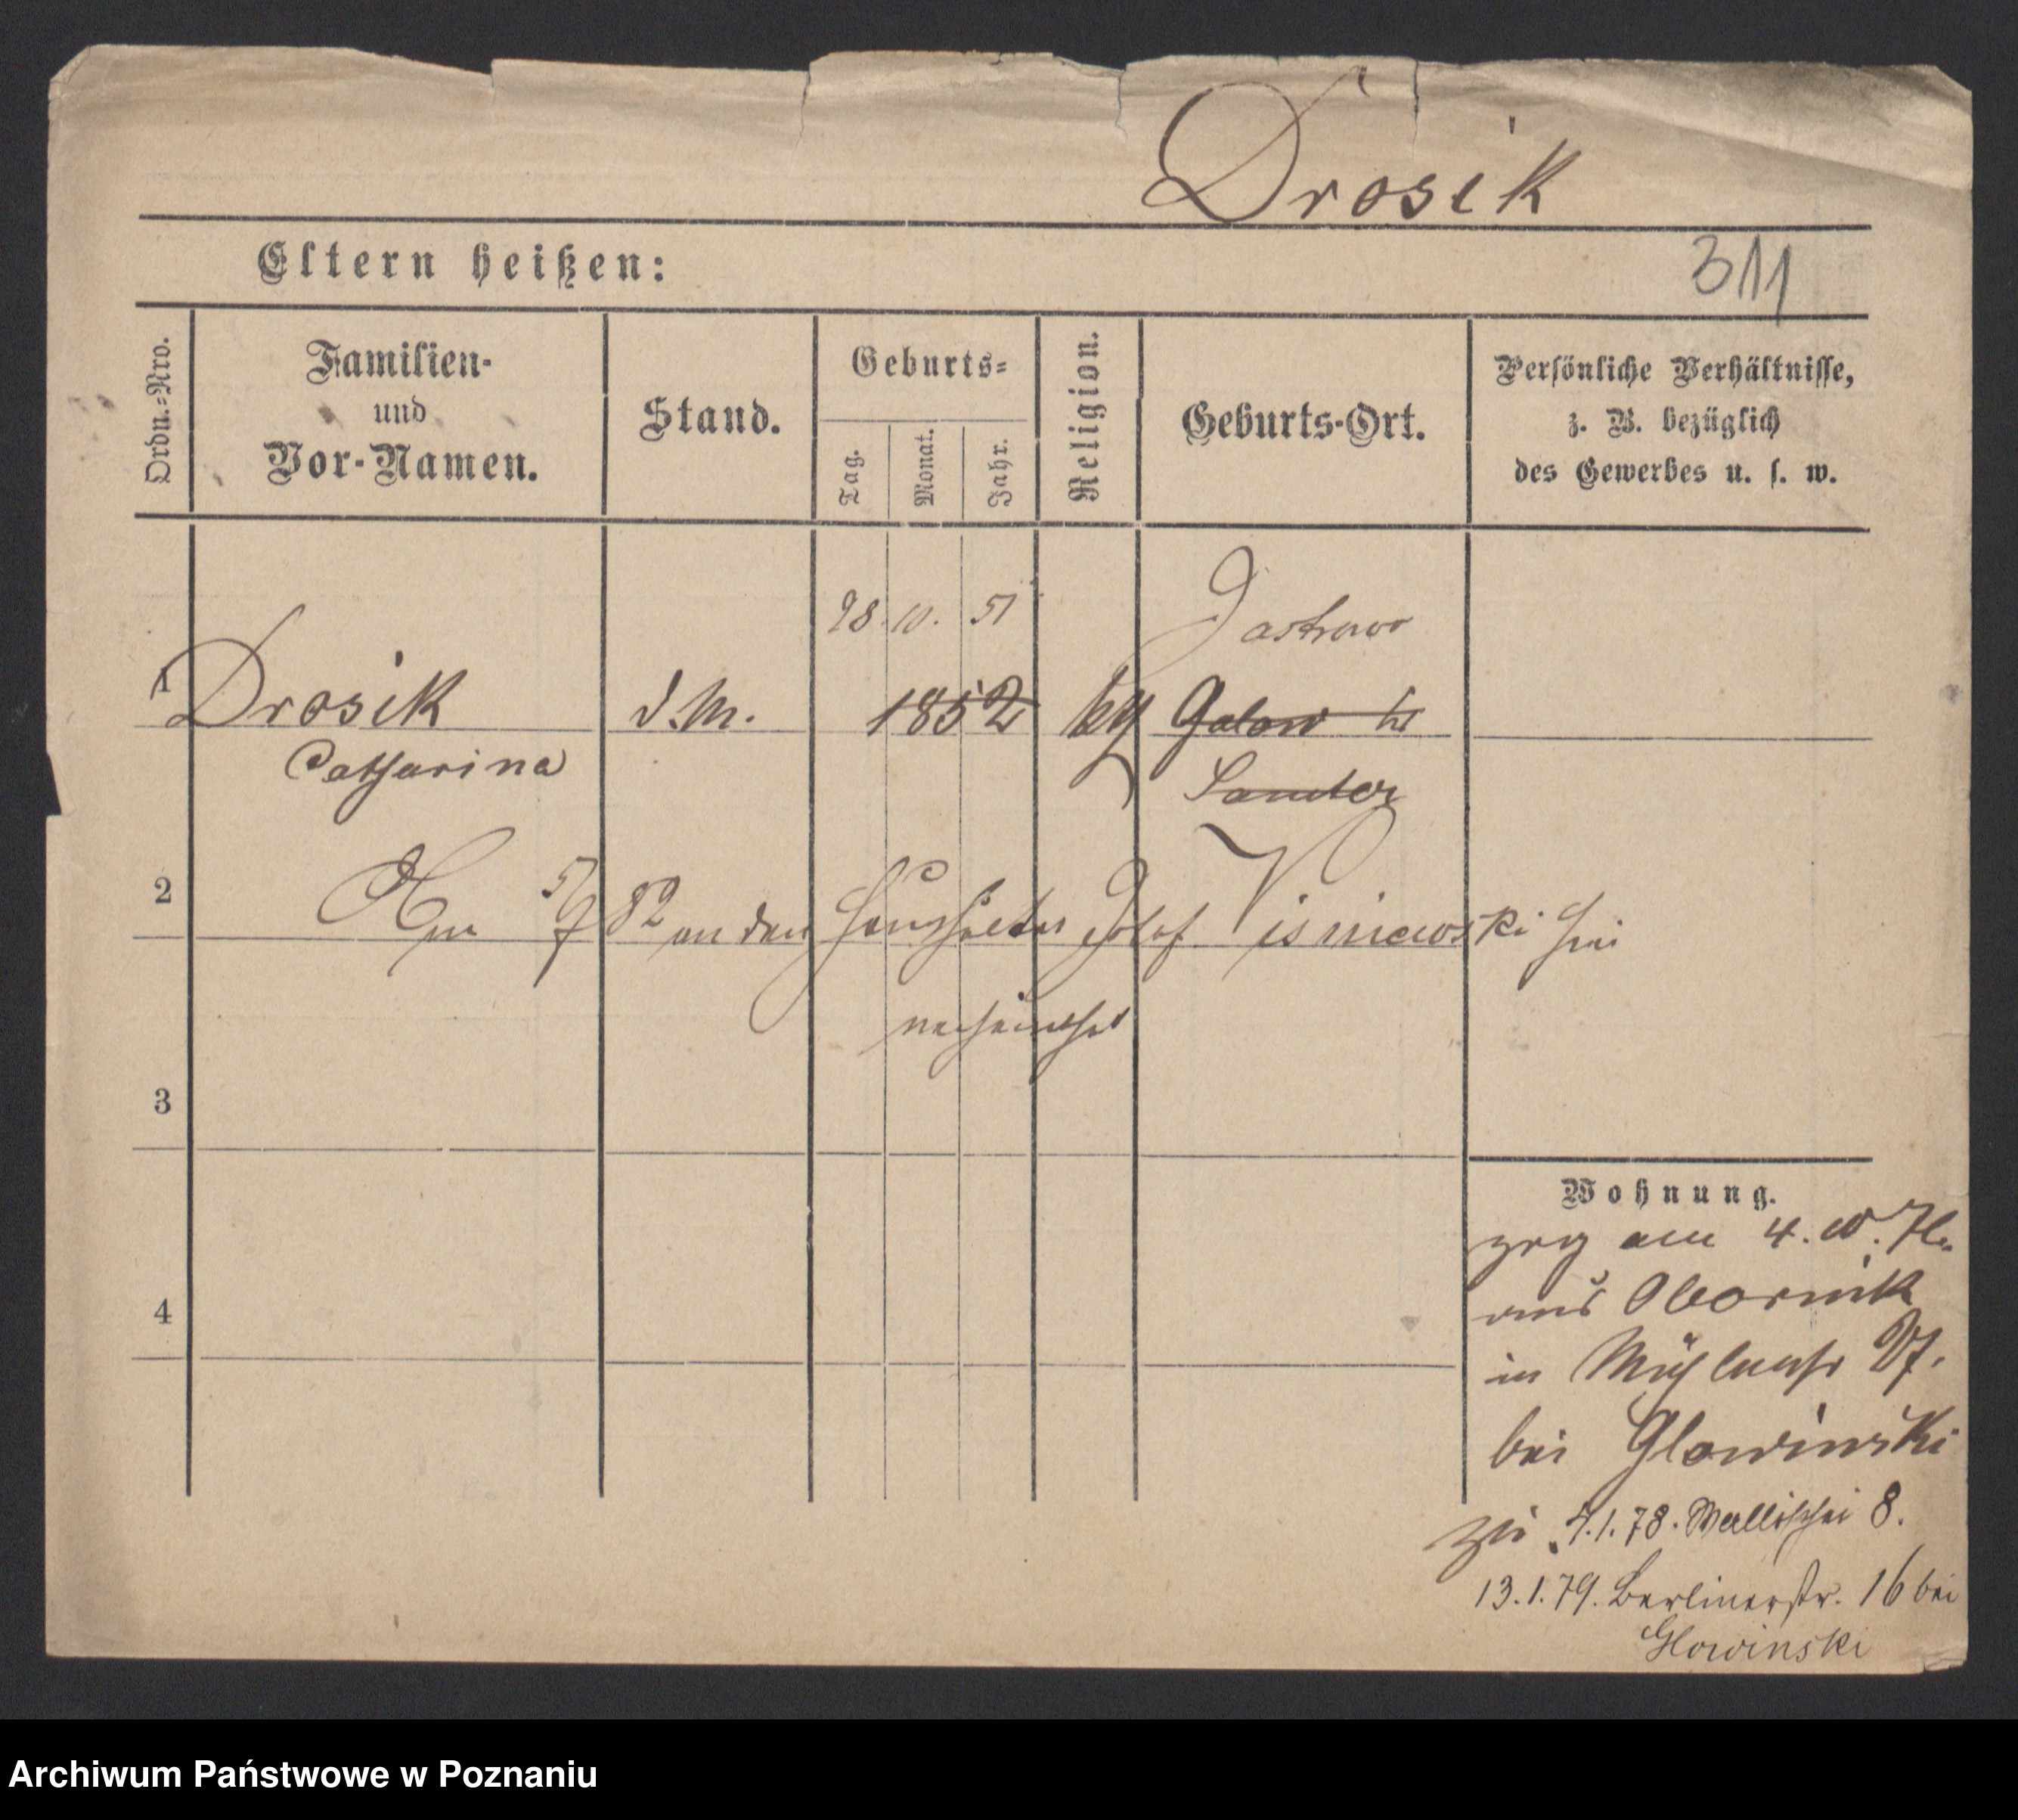 Drosik
Eltern heißen:
311
Ordn.-Nro.
Familien-
und
Vor-Namen.
Stand.
Geburts-
Tag.
Monat.
Jahr.
Religion.
Geburts-Ort.
Persönliche Verhältnisse,
z. B. bezüglich
des Gewerbes u. s. w.
28. 10. 51 Jastrowo
1 Drosik d. M. 1852 kth Galow Kr
Catharina Samter
2 Am 5/9 82 an den Haushälter Josef Visniewski hier
verheirathet
3
4
Wohnung.
zog am 4. 10.
aus Obornik
in Mühlenstr 27.
bei Glowinski
zu 7.1.78. Wallischei 8.
13.1.79. Berlinerstr. 16 bei
Glowinski
Archiwum Państwowe w Poznaniu